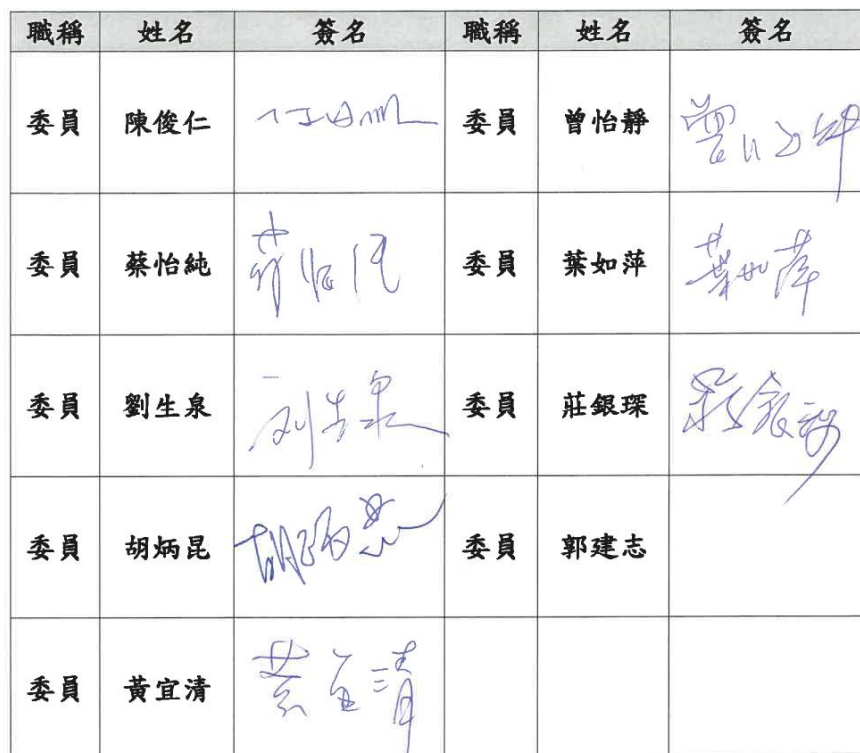 職稱 姓名 簽名 職稱 姓名 簽名
委員 陳俊仁 委員 曾怡靜
委員 蔡怡純 委員 葉如萍 葉如萍
委員 劉生泉 刘生泉 委員 莊銀琛
委員 胡炳昆 委員 郭建志
委員 黃宜清 黃宜清